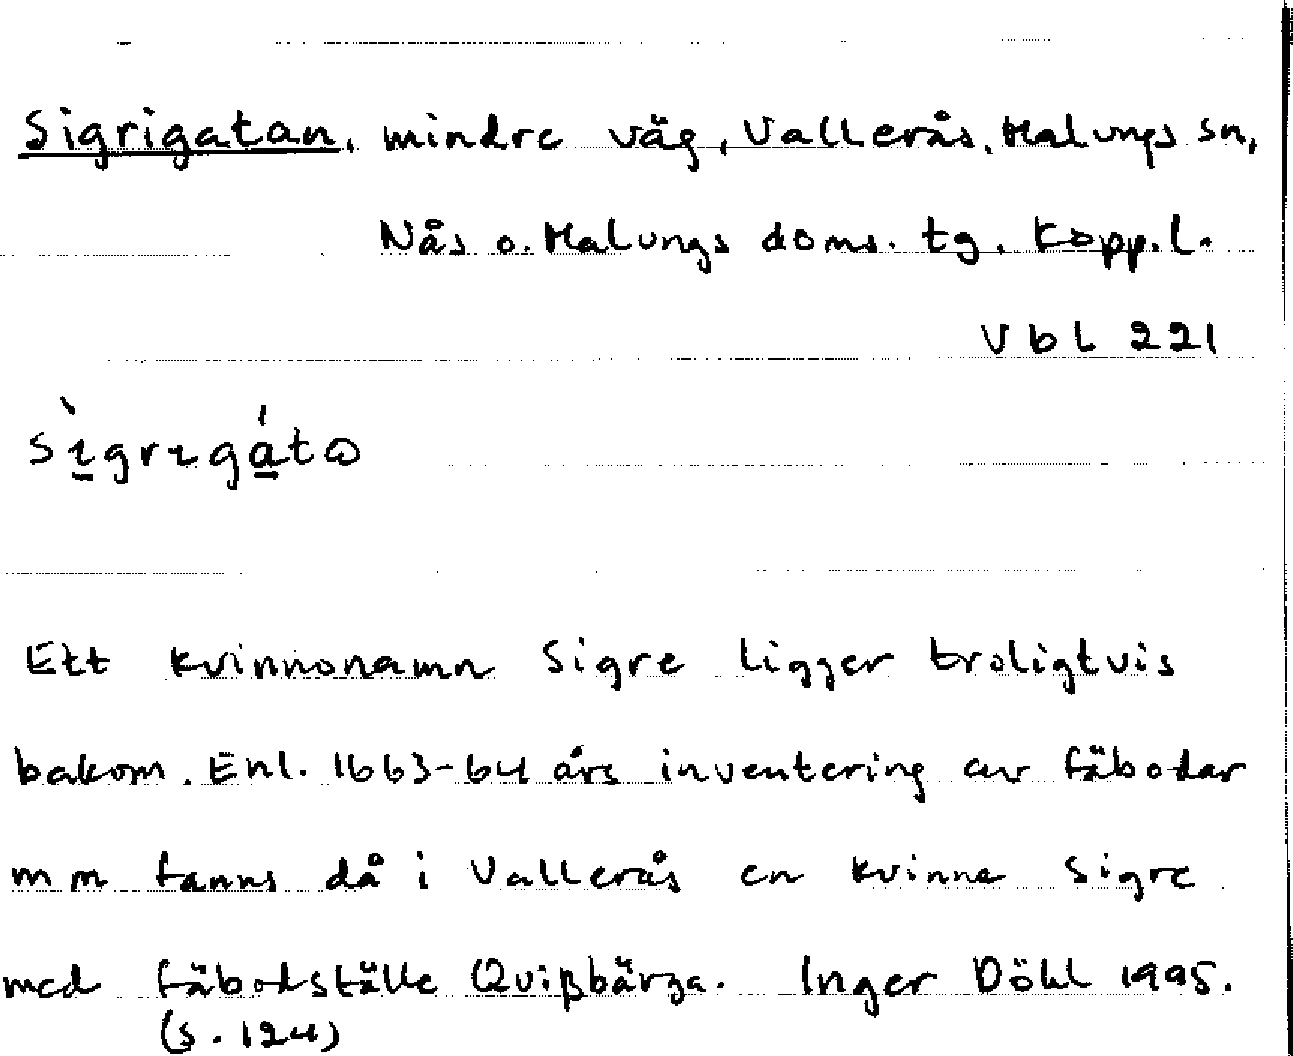 Sigrigatan, mindre väg, Vallerås, Malungs sn,
Nås o. Malungs doms. tg. Kopp. l.
Vbl 221
sìgrɪgáta
Ett kvinnonamn Sigre ligger troligtvis
bakom. Enl. 1663-64 års inventering av fäbodar
m m fanns då i Vallerås en kvinna Sigre
med fäbodställe Quißbärga. Inger Döhl 1995.
(s. 124)